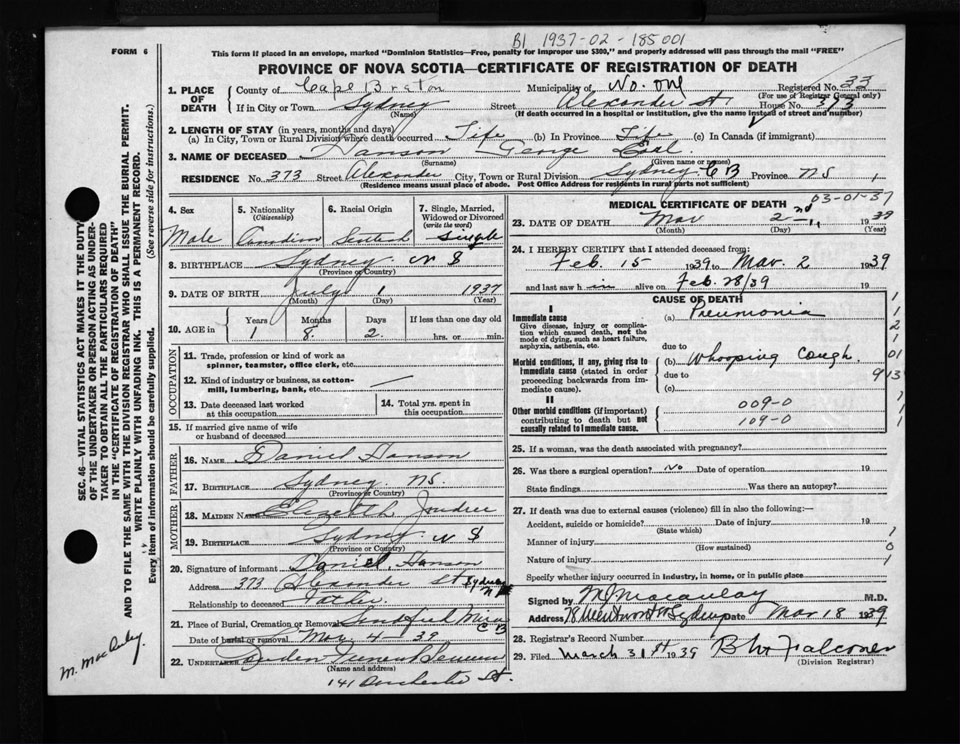 B1 1937-02-185001
FORM 6
This form if placed in an envelope, marked "Dominion Statistics—Free, penalty for improper use $300," and properly addressed will pass through the mail "FREE"
PROVINCE OF NOVA SCOTIA—CERTIFICATE OF REGISTRATION OF DEATH
1. PLACE OF DEATH County of Cape Breton Municipality of No. one Registered No. 33
(For use of Registrar General only)
If in City or Town Sydney Street Alexander St. House No. 373
(Name) (If death occurred in a hospital or institution, give the name instead of street and number)
2. LENGTH OF STAY (in years, months and days)
(a) In City, Town or Rural Division where death occurred Life (b) In Province Life (c) In Canada (if immigrant)
3. NAME OF DECEASED Hanson George Earl
(Surname) (Given name or names)
RESIDENCE No. 373 Street Alexander City, Town or Rural Division Sydney C B Province NS
(Residence means usual place of abode. Post Office Address for residents in rural parts not sufficient)
4. Sex Male
5. Nationality (Citizenship) Canadian
6. Racial Origin
7. Single, Married, Widowed or Divorced (write the word) Single
8. BIRTHPLACE Sydney N S
(Province or Country)
9. DATE OF BIRTH July 1 1937
(Month) (Day) (Year)
10. AGE in Years Months Days If less than one day old
1 8 2 hrs. or min.
OCCUPATION
11. Trade, profession or kind of work as spinner, teamster, office clerk, etc.
12. Kind of industry or business, as cotton-mill, lumbering, bank, etc.
13. Date deceased last worked at this occupation
14. Total yrs. spent in this occupation
15. If married give name of wife or husband of deceased
FATHER
16. NAME Daniel Hanson
17. BIRTHPLACE Sydney NS.
(Province or Country)
MOTHER
18. MAIDEN NAME Elizabeth
19. BIRTHPLACE Sydney N S
(Province or Country)
20. Signature of informant Daniel Hanson
Address 373 Alexander St Sydney NS
Relationship to deceased Father
21. Place of Burial, Cremation or Removal Mira C B
Date of burial or removal Mar 4 39
22. UNDERTAKER
(Name and address)
141 Dorchester St.
MEDICAL CERTIFICATE OF DEATH
03-01-37
23. DATE OF DEATH Mar 2nd 1939
(Month) (Day) (Year)
24. I HEREBY CERTIFY that I attended deceased from:
Feb 15 1939 to Mar. 2 1939
and last saw h im alive on Feb 28/39 19
CAUSE OF DEATH
I
Immediate cause (a) Pneumonia
Give disease, injury or complication which caused death, not the mode of dying, such as heart failure, asphyxia, asthenia, etc.
due to
Morbid conditions, if any, giving rise to immediate cause (stated in order proceeding backwards from immediate cause). (b) Whooping Cough
due to
(c)
II
Other morbid conditions (if important) contributing to death but not causally related to immediate cause.
009-0
109-0
25. If a woman, was the death associated with pregnancy?
26. Was there a surgical operation? No Date of operation 19
State findings Was there an autopsy?
27. If death was due to external causes (violence) fill in also the following:—
Accident, suicide or homicide? Date of injury 19
(State which)
Manner of injury
(How sustained)
Nature of injury
Specify whether injury occurred in industry, in home, or in public place
Signed by M J Macaulay M.D.
Address 78 Wentworth Sydney Date Mar 18 1939
28. Registrar's Record Number
29. Filed March 31st 1939 Falconer
(Division Registrar)
SEC. 46—VITAL STATISTICS ACT MAKES IT THE DUTY
OF THE UNDERTAKER OR PERSON ACTING AS UNDER-
TAKER TO OBTAIN ALL THE PARTICULARS REQUIRED
IN THE "CERTIFICATE OF REGISTRATION OF DEATH"
AND TO FILE THE SAME WITH THE DIVISION REGISTRAR WHO SHALL ISSUE THE BURIAL PERMIT.
WRITE PLAINLY WITH UNFADING INK. THIS IS A PERMANENT RECORD.
Every item of information should be carefully supplied. (See reverse side for instructions.)